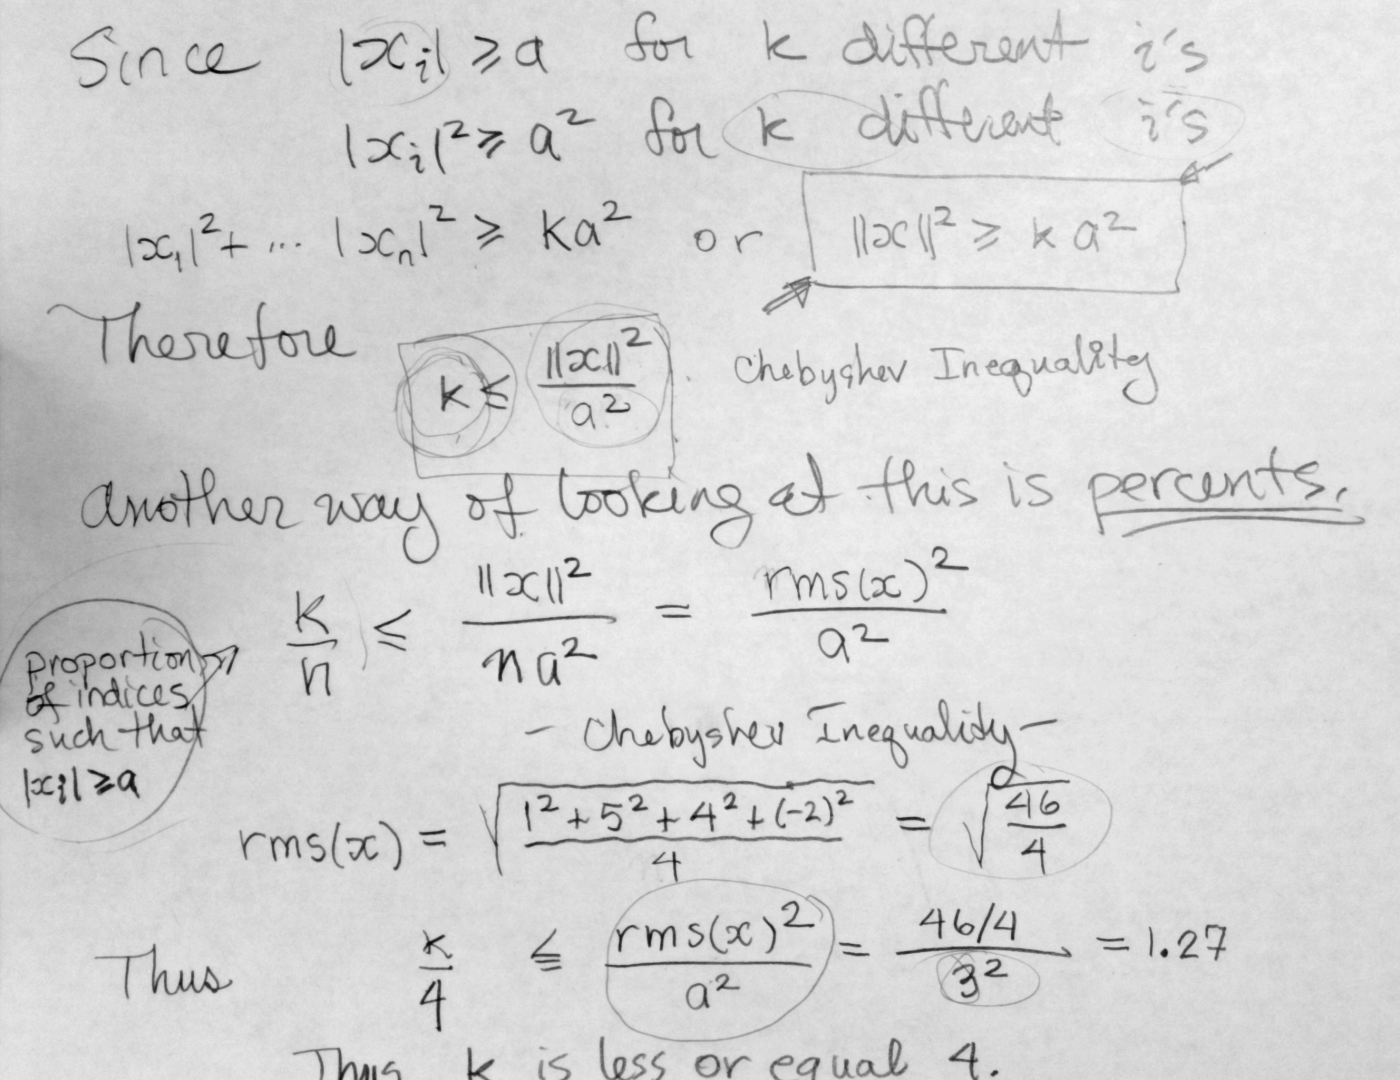 Since |xᵢ| ⩾ a for k different i's
|xᵢ|² ⩾ a² for k different i's
|x₁|² + ... |xₙ|² ⩾ ka² or ||x||² ⩾ k a²
Therefore k ≤ ||x||² / a² . Chebyshev Inequality
another way of looking at this is percents.
k/n ≤ ||x||² / na² = rms(x)² / a²
proportion
of indices
such that
|xᵢ| ⩾ a
- Chebyshev Inequality -
rms(x) = √((1² + 5² + 4² + (-2)²) / 4) = √(46/4)
Thus k/4 ≤ rms(x)² / a² = 46/4 / 3² = 1.27
Thus k is less or equal 4.